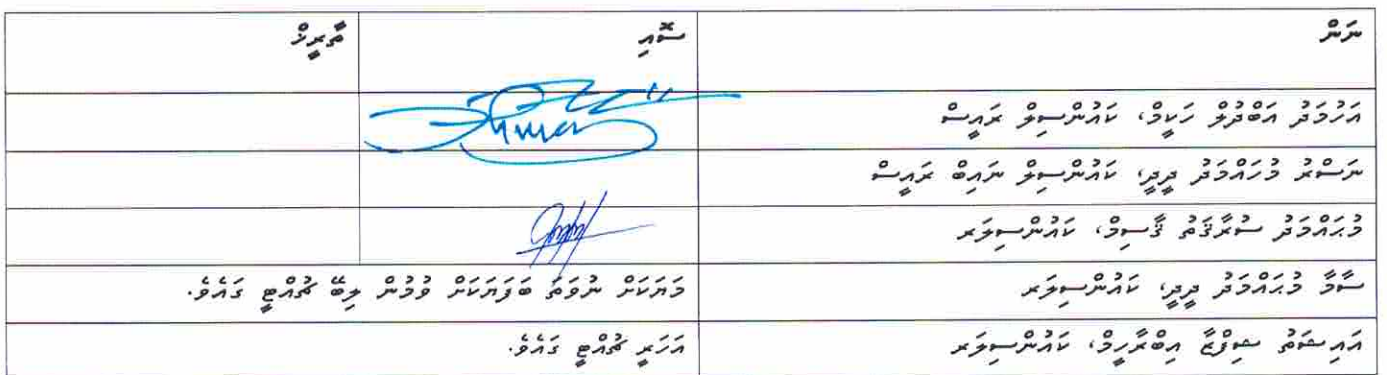 ނަން ސޮއި ތާރީޚް
އަހުމަދު އަބްދުލް ހަކީމް، ކައުންސިލް ރައީސް
ނަސްރު މުހައްމަދު ދީދީ، ކައުންސިލް ނައިބް ރައީސް
މުޙައްމަދު ސުރާޤަތު ޤާސިމް، ކައުންސިލަރ
ސާމާ މުޙައްމަދު ދީދީ، ކައުންސިލަރ މަޔަކަށް ނުވަތަ ބަފަޔަކަށް ވުމުން ލިބޭ ޗުއްޓީ ގައެވެ.
އައިޝަތު ޝިފްޒާ އިބްރާހީމް، ކައުންސިލަރ އަހަރީ ޗުއްޓީ ގައެވެ.